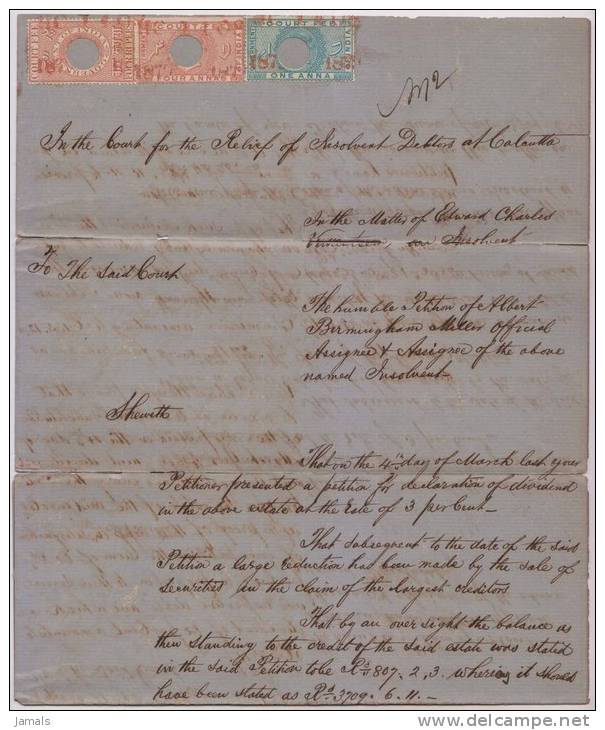 COURT FEE
COURT FEE
GOVERNMENT
INDIA
FOUR ANNAS
ONE ANNA
In the Court for the Relief of Insolvent Debtors at Calcutta
In the Matter of Edward Charles
an Insolvent
To The Said Court
The humble Petition of Albert
Birmingham Miller Official
Assignee & Assignee of the above
named Insolvent –
Sheweth
That on the 4th day of March last your
Petitioner presented a petition for declaration of dividend
in the above estate at the Rate of 3 per Cent –
That subsequent to the date of the said
Petition a large reduction has been made by the sale of
securities in the claim of the largest creditors
That by an over sight the balance as
then standing to the credit of the said estate was stated
in the said Petition to be Rs 807. 2. 3. whereas it should
have been stated as Rs 3709. 6. 11. –
Jamals
www.delcampe.net